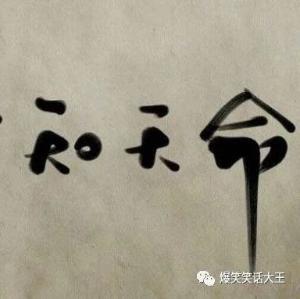 知天命
爆笑笑话大王